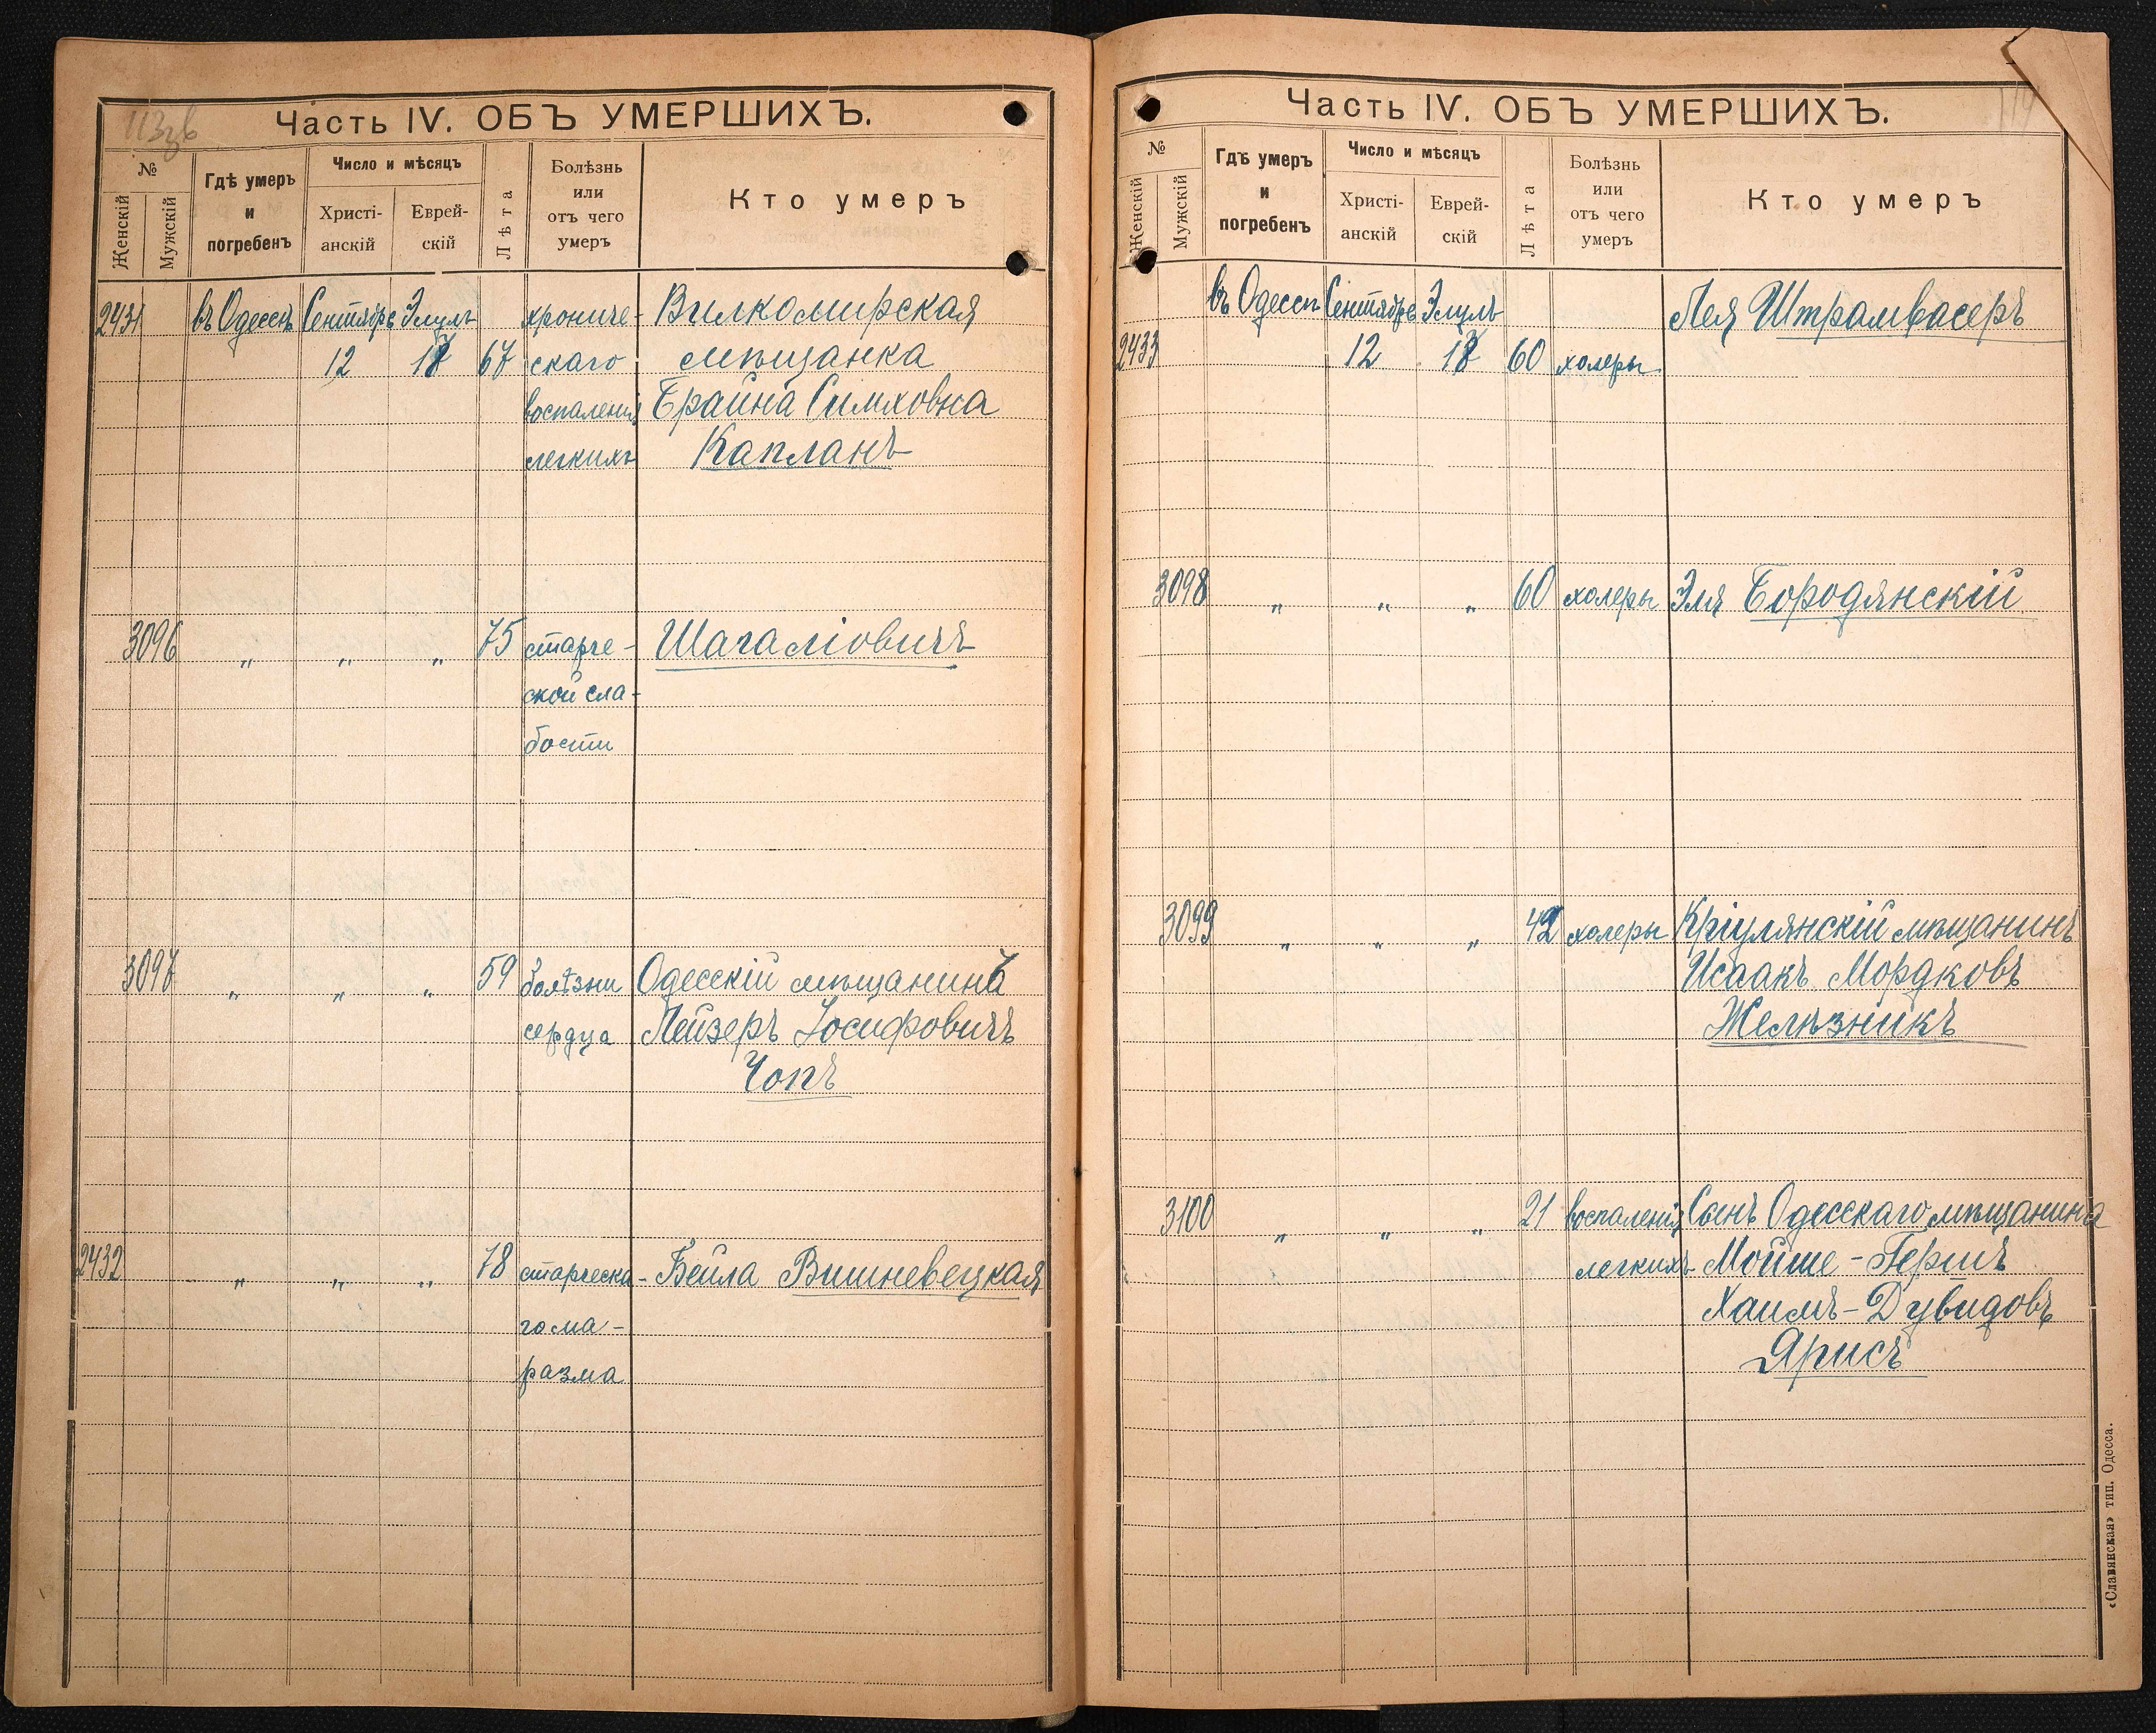 113 зв
Часть IV. ОБЪ УМЕРШИХЪ.
№
Женскій
Мужскій
Гдѣ умеръ
и
погребенъ
Число и мѣсяцъ
Христі-
анскій
Еврей-
скій
Лѣта
Болѣзнь
или
отъ чего
умеръ
Кто умеръ
2431 въ Одессѣ Сентябрь Элулъ хрониче- Вилкомирская
12 18 67 скаго мѣщанка
воспаленія Брайна Симховна
легкихъ Капланъ
3096 " " " 75 старче- Шагаліовичъ
ской сла-
бости
3097 " " " 59 болѣзни Одесскій мѣщанинъ
сердца Лейзеръ Іосифовичъ
Чопъ
2432 " " " 78 старческа- Бейла Вишневецкая
го ма-
разма
Часть IV. ОБЪ УМЕРШИХЪ.
№
Женскій
Мужскій
Гдѣ умеръ
и
погребенъ
Число и мѣсяцъ
Христі-
анскій
Еврей-
скій
Лѣта
Болѣзнь
или
отъ чего
умеръ
Кто умеръ
въ Одессѣ Сентябрь Элулъ Лея Штрамвасеръ
2433 12 18 60 холеры
3098 " " " 60 холеры Эля Бородянскій
3099 " " " 42 холеры Кріулянскій мѣщанинъ
Исаакъ Мордковъ
Желѣзникъ
3100 " " " 21 воспаленія Сынъ Одесскаго мѣщанина
легкихъ Мойше-Герша
Хаимъ-Дувидовъ
Ярисъ
«Славянская» тип. Одесса.